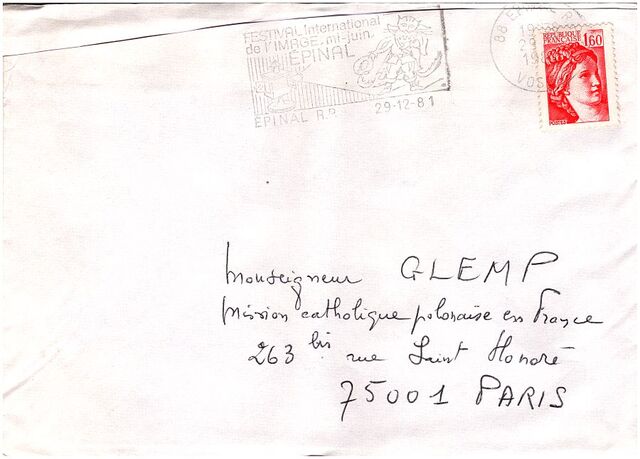 FESTIVAL International
de l'IMAGE. mi-juin.
EPINAL
EPINAL R.P.
29-12-81
88
R.P.
19
29
19
VOS
REPUBLIQUE
FRANCAISE
1,60
Monseigneur GLEMP
Mission catholique polonaise en France
263 bis rue Saint Honoré
75001 PARIS